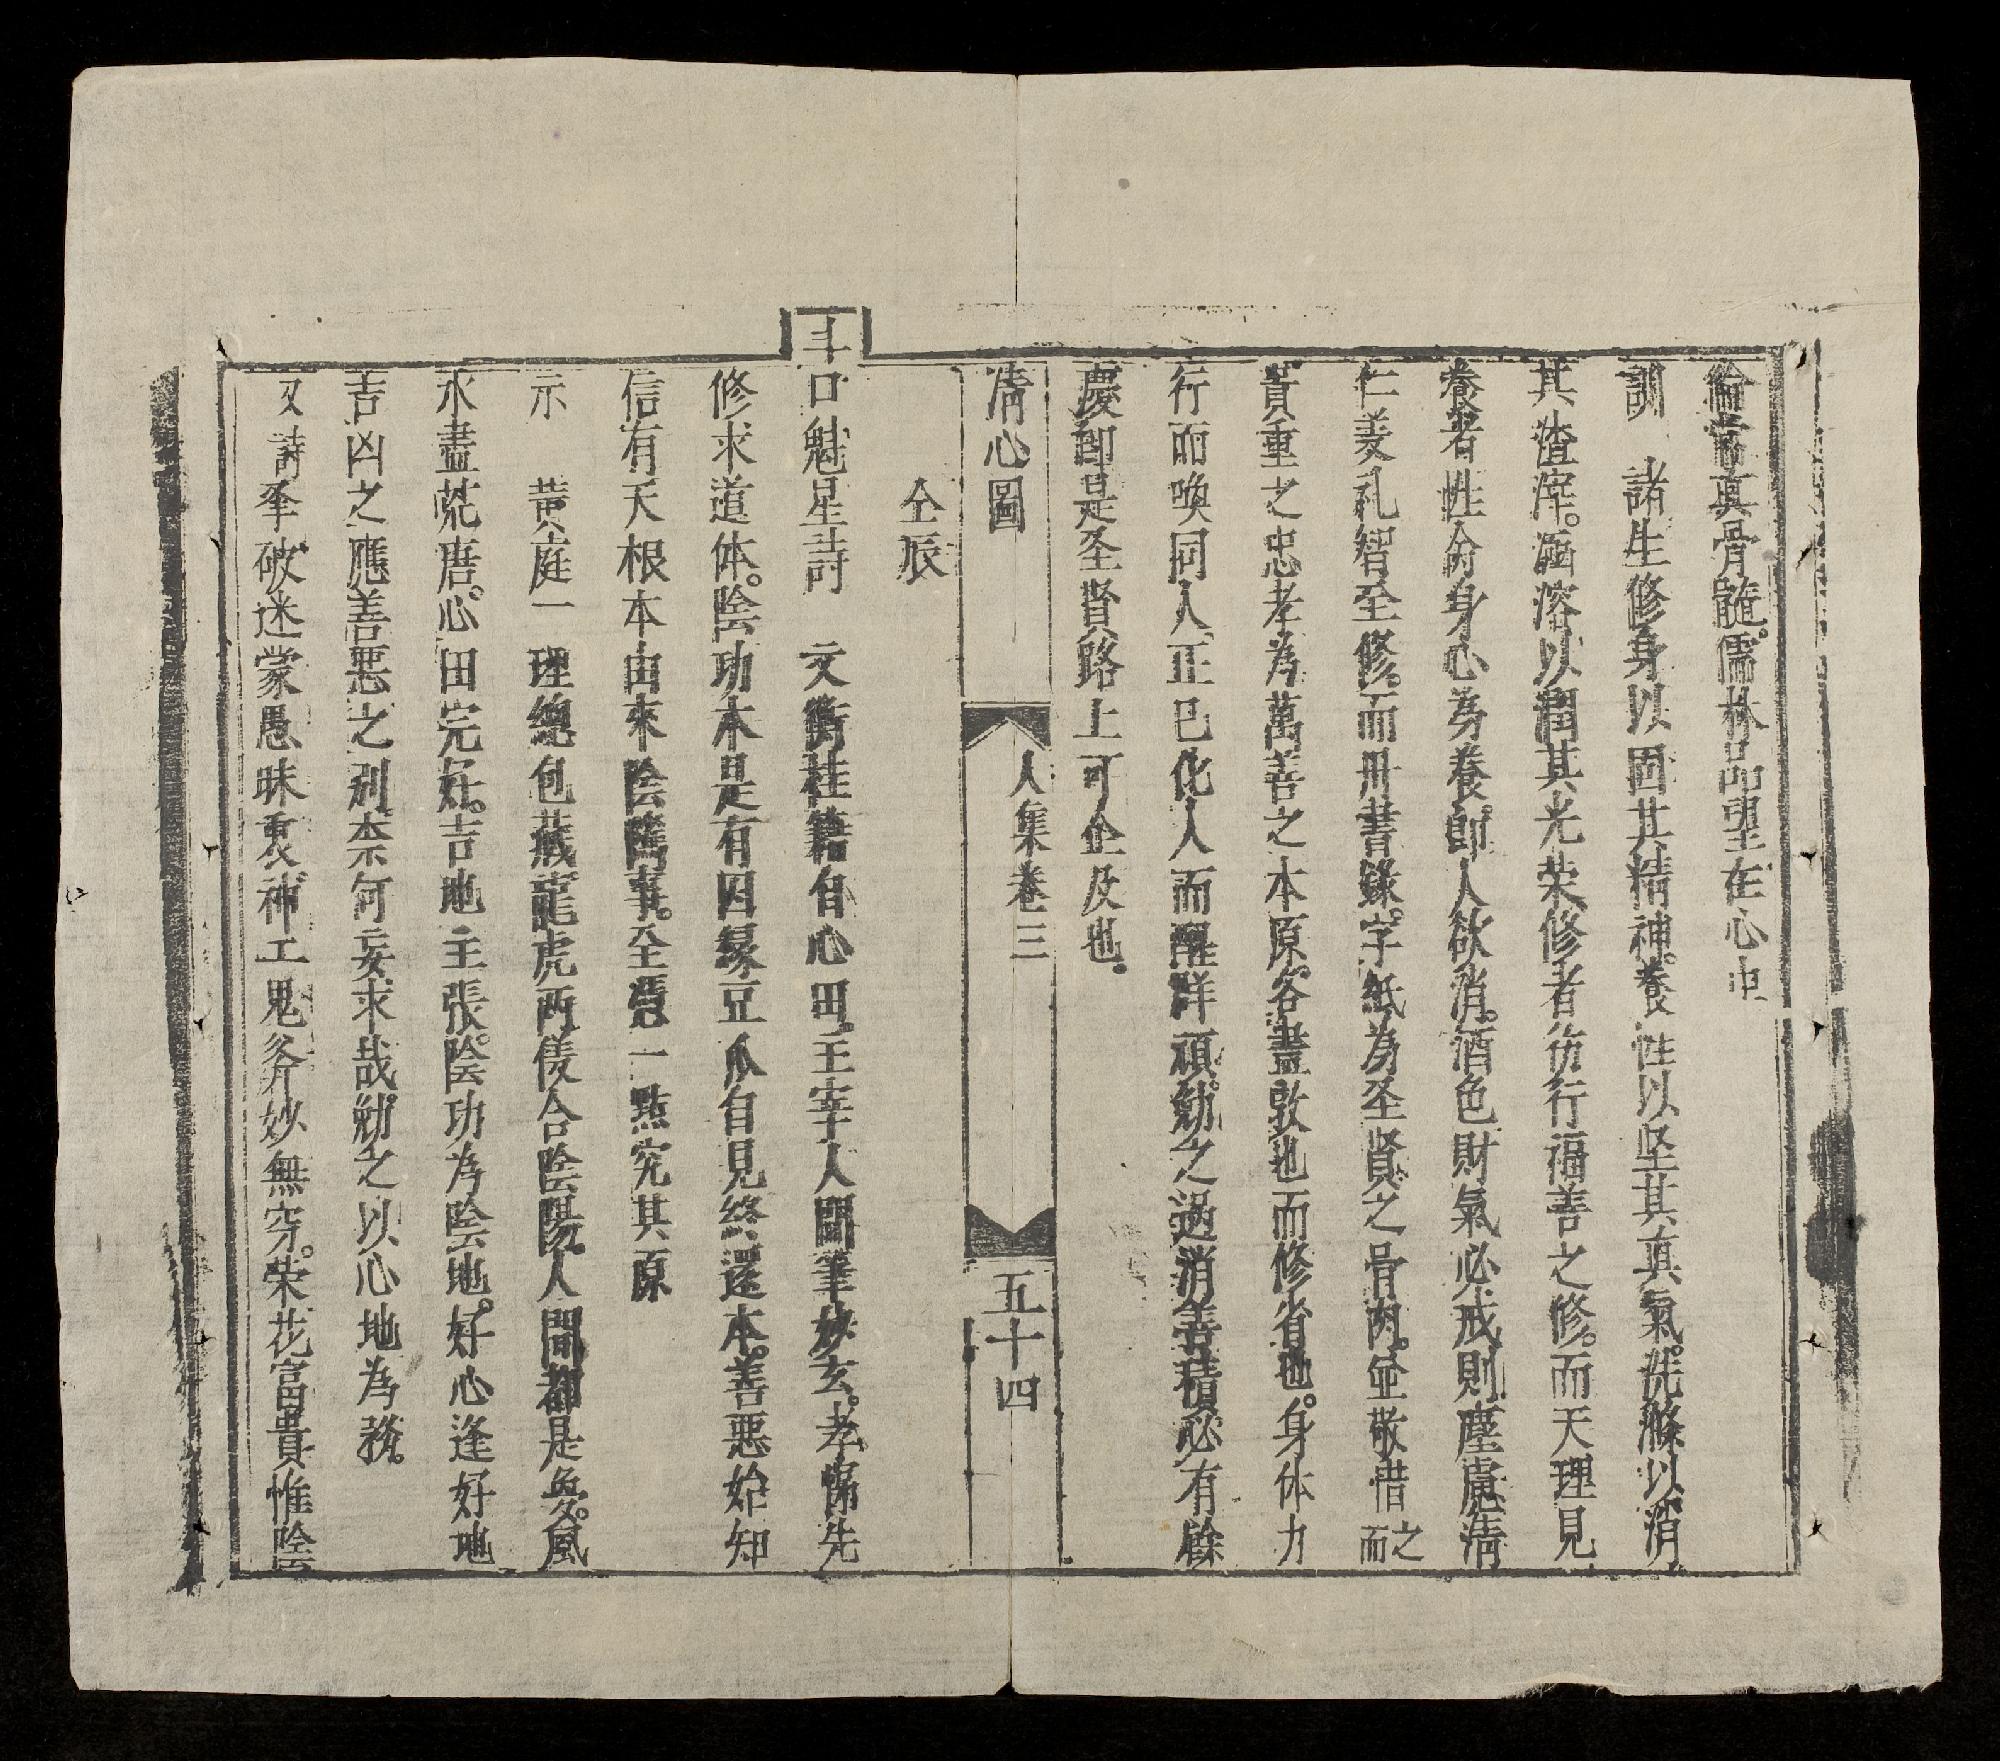 倫常真骨髓。儒林品望在心中
訓　諸生修身以固其精神。養性以坚其真氣。洗滌以消
其渣滓。涵溶以潤其光荣修者仿行福善之修。而天理見
養者性命身心為養。即人欲消。酒色財氣必戒則塵慮清
仁羙礼智至修。而卅書錄。字紙為圣賢之骨肉。並敬惜之而
貴重之忠孝為萬善之本原。各盡敦也而修省也。身体力
行而喚同人。正己化人而醒詳頑。勉之過消善積必有餘
慶即是圣賢路上可企及也。
清心圖　人集卷三　五十四
仝辰
斗口魁星詩　文衡桂籍自心田。主宰人間筆妙玄。孝悌先
修求道体。陰功本是有因緣豆瓜自見終還本。善惡始知
信有天根本由來陰隲事。全憑一點究其原
示　黄庭一理總包藏。龍虎两儀合陰陽。人間都是𡖋。風
水盡荒唐。心田完好。吉地主張。陰功為陰地。好心逢好地
吉凶之應善悪之别。柰何妄求哉。勉之以心地為務。
又詩 筆破迷蒙愚昧衷。神工鬼斧妙無穷。荣花富貴惟陰